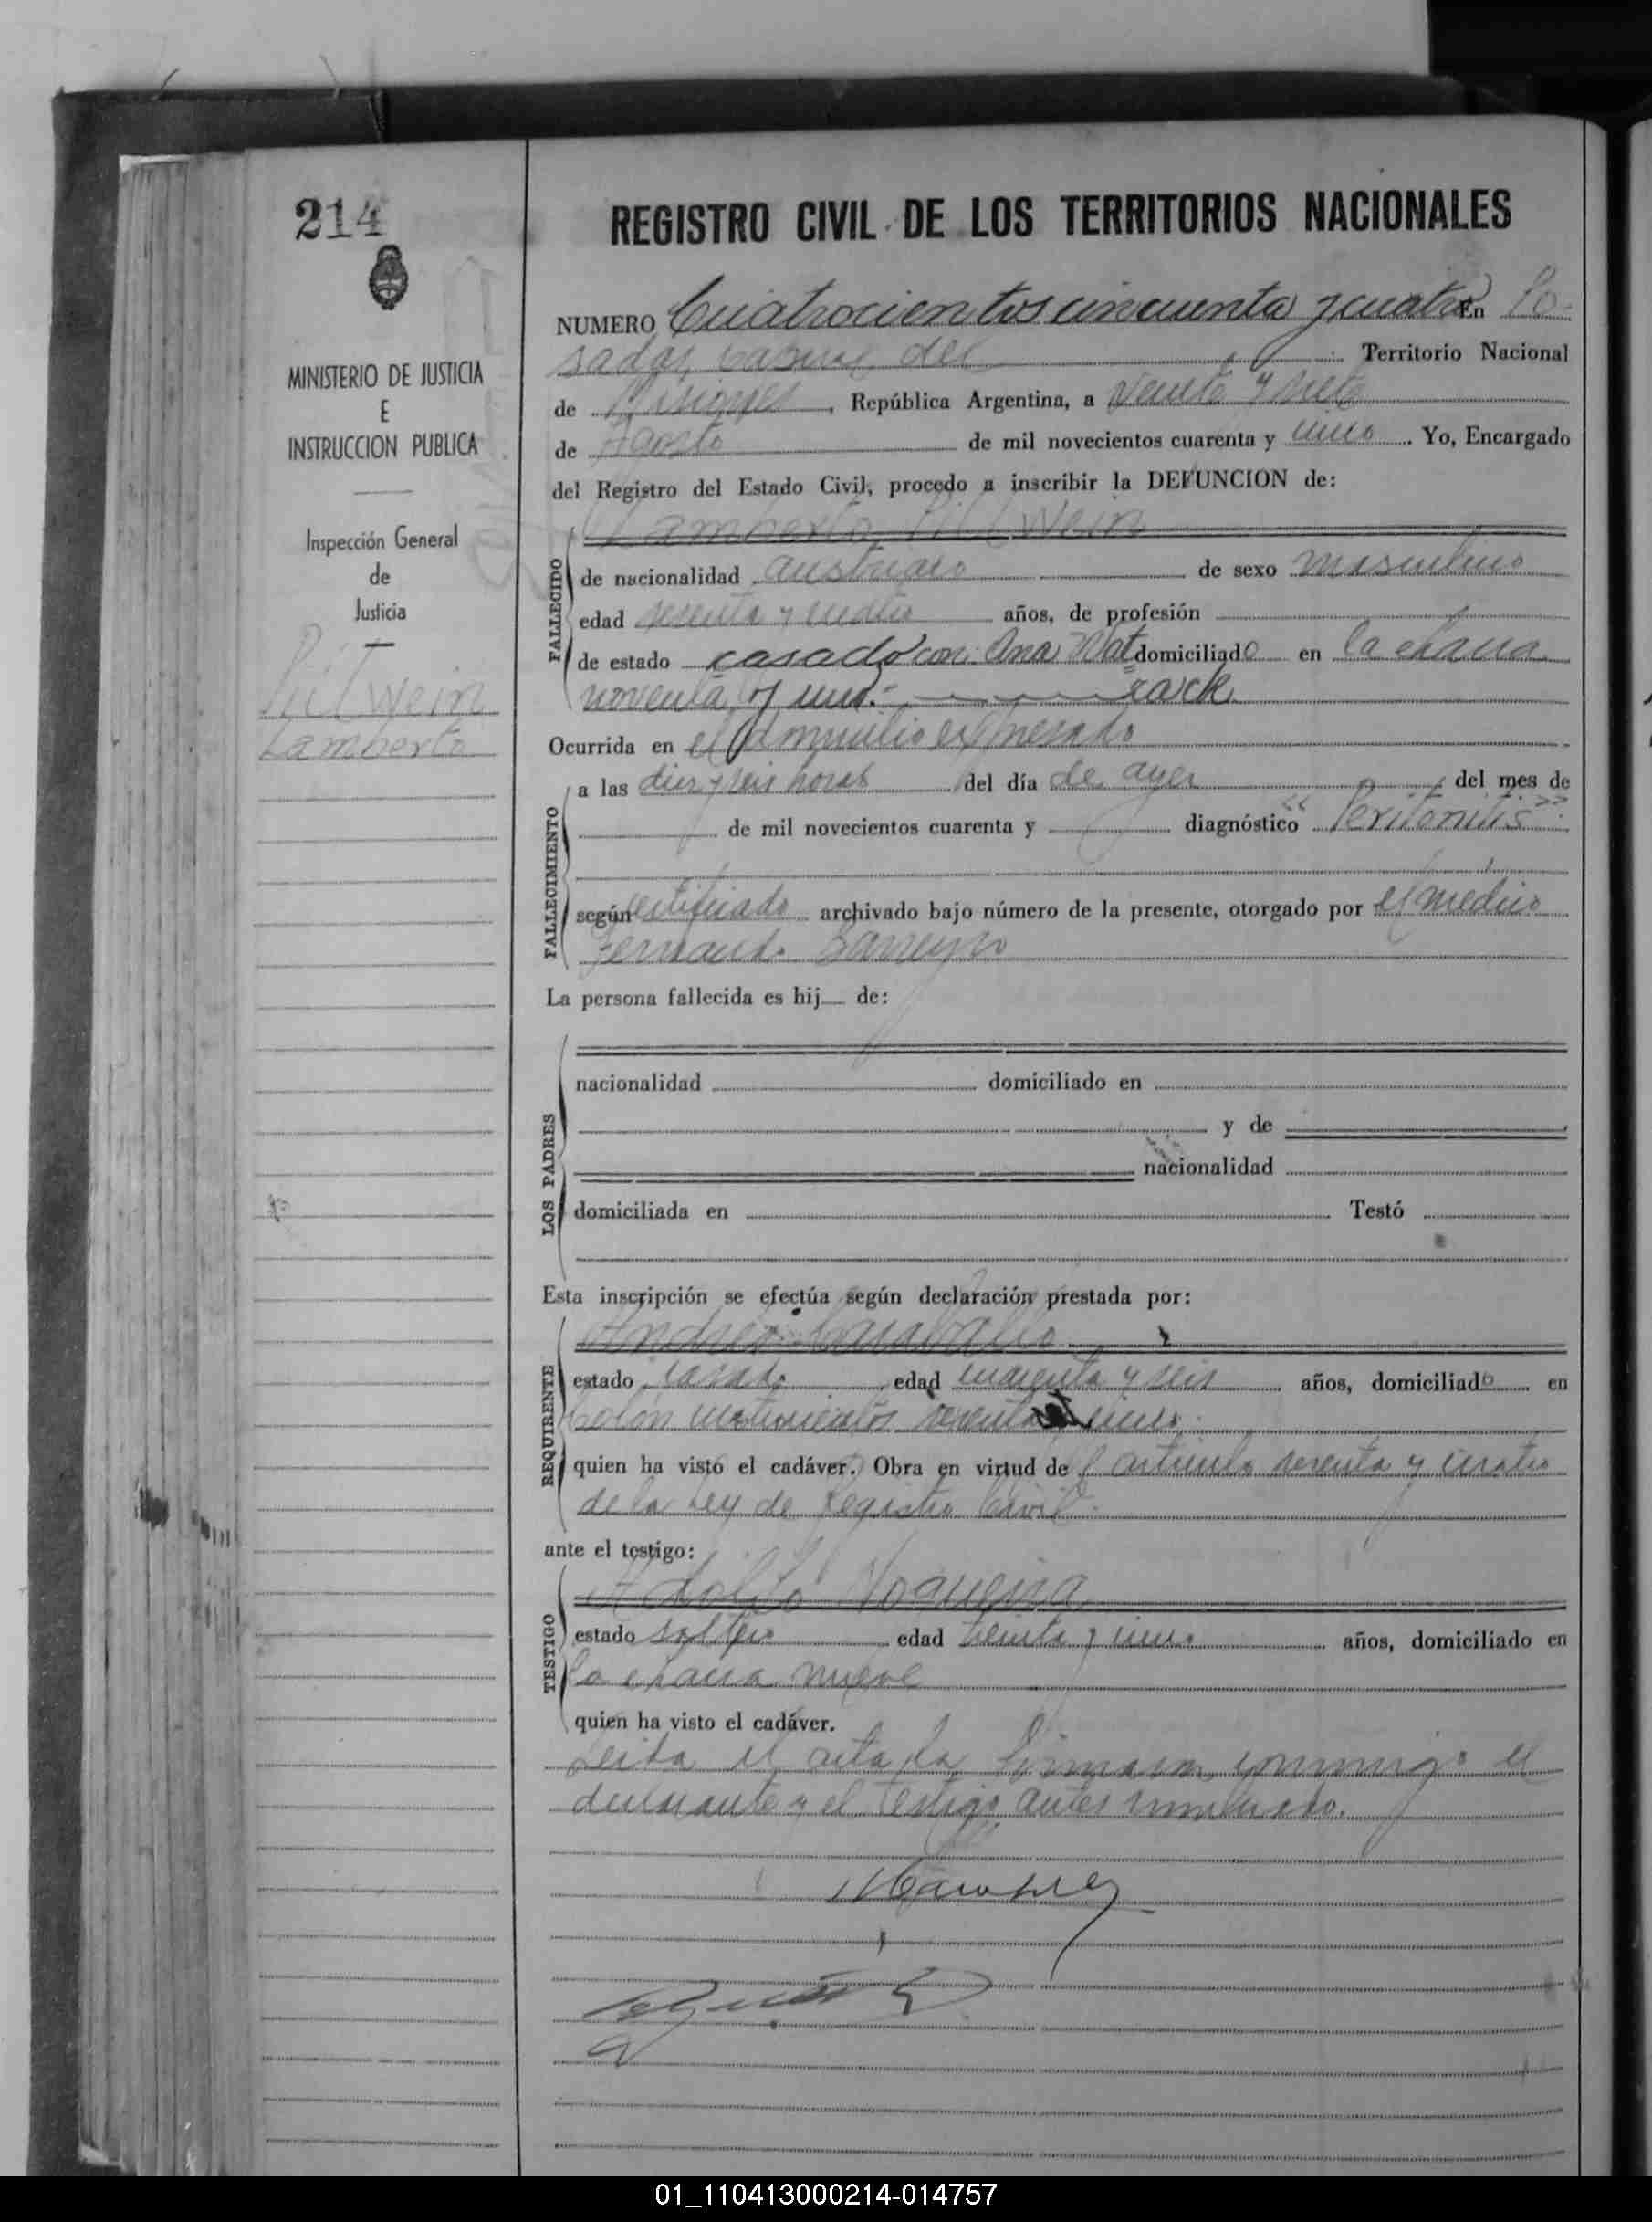 214
REGISTRO CIVIL DE LOS TERRITORIOS NACIONALES
MINISTERIO DE JUSTICIA
E
INSTRUCCION PUBLICA
Inspección General
de
Justicia
Pilwein
Lamberto
NUMERO Cuatrocientos cincuenta y cuatro En Po-
sadas, capital del Territorio Nacional
de Misiones, República Argentina, a veinte y siete
de Agosto de mil novecientos cuarenta y uno. Yo, Encargado
del Registro del Estado Civil, procedo a inscribir la DEFUNCION de:
Lamberto Pilwein
FALLECIDO
de nacionalidad austriaco de sexo masculino
edad sesenta y cuatro años, de profesión
de estado casado con Ana Wat= domiciliado en la chacra
noventa y uno.- zack
Ocurrida en el domicilio expresado
FALLECIMIENTO
a las diez y seis horas del día de ayer del mes de
de mil novecientos cuarenta y diagnóstico "Peritonitis".
según certificado archivado bajo número de la presente, otorgado por el medico
Fernando Barreyro
La persona fallecida es hij de:
LOS PADRES
nacionalidad domiciliado en
y de
nacionalidad
domiciliada en Testó
Esta inscripción se efectúa según declaración prestada por:
REQUIRENTE
Andrés Caraballo
estado casado edad cuarenta y seis años, domiciliado en
Colón cuatrocientos sesenta cinco.
quien ha visto el cadáver. Obra en virtud del articulo sesenta y cuatro
de la Ley de Registro Civil.
ante el testigo:
TESTIGO
Adolfo Noguera
estado soltero edad treinta y uno años, domiciliado en
la chacra nueve
quien ha visto el cadáver.
Leida el acta, la firmaron conmigo el
declarante y el testigo antes nombrado.
01_110413000214-014757